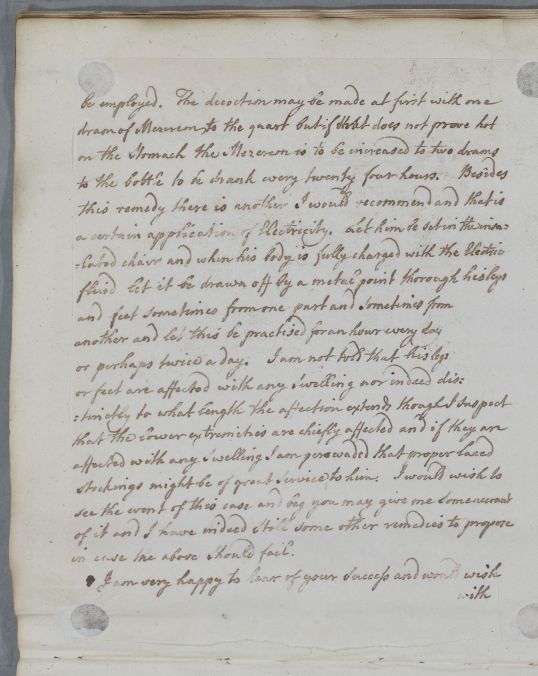 be employed. The decoction may be made at first with one
dram of Mezereon to the quart but if that does not prove hot
on the Stomach the Mezereon is to be increased to two drams
to the bottle to be drank every twenty four hours. Besides
this remedy there is another I would recommend and that is
a certain application of Electricity. Let him be set in the insu-
-lated chair and when his body is fully charged with the Electric
fluid let it be drawn off by a metal point thorough his legs
and feet sometimes from one part and sometimes from
another and let this be practised for an hour every day
or perhaps twice a day. I am not told that his legs
or feet are affected with any swelling nor indeed dis:
:tinctly to what length the affection extends though I suspect
that the lower extremities are chiefly affected and if they are
affected with any Swelling I am perswaded that proper laced
stockings might be of great Service to him. I would wish to
see the event of this case and beg you may give me some account
of it and I have indeed still some other remedies to propose
in case the above should fail.
I am very happy to hear of your Success and would wish
with